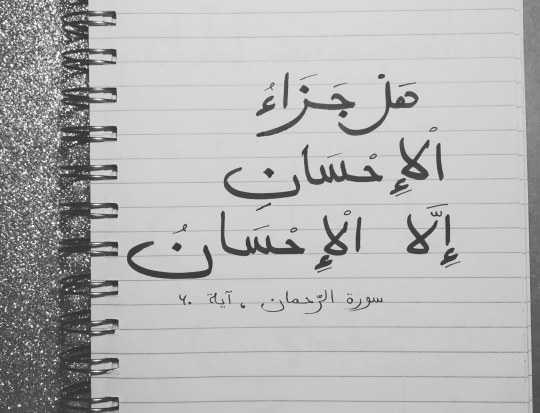 هَلْ جَزَاءُ
اْلإِحْسَانِ
إِلَّا اْلإِحْسَانُ
سورة الرّحمان ، آية ٦٠